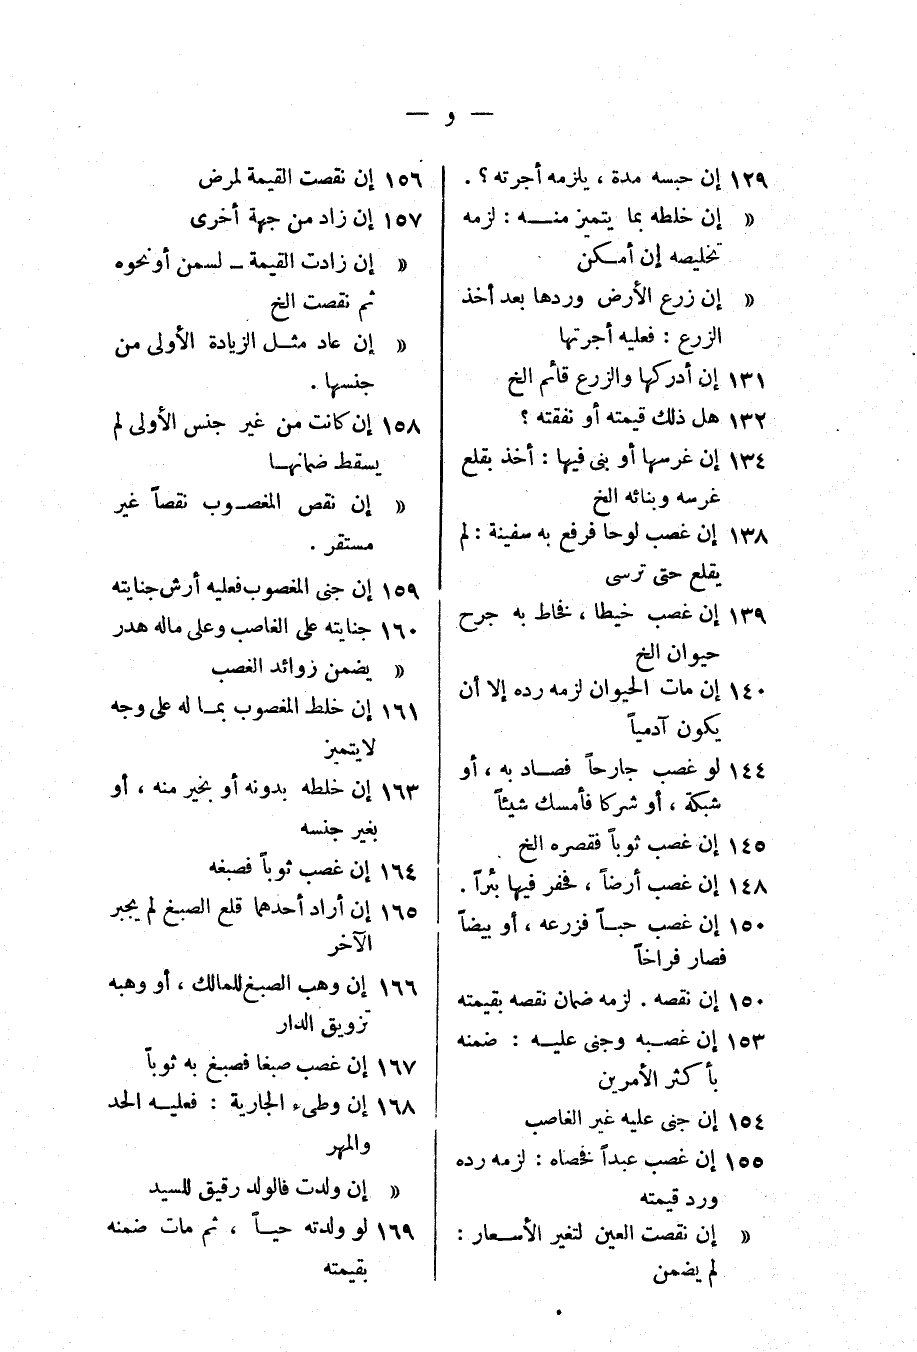 — و —
١٢٩ إن حبسه مدة ، يلزمه أجرته ؟ .
» إن خلطه بما يتميز منـــه : لزمه
تخليصه إن أمـكن
» إن زرع الأرض وردها بعد أخذ
الزرع : فعليه أجرتها
١٣١ إن أدركها والزرع قائم الخ
١٣٢ هل ذلك قيمته أو نفقته ؟
١٣٤ إن غرسها أو بنى فيها : أخذ بقلع
غرسه وبنائه الخ
١٣٨ إن غصب لوحا فرقع به سفينة : لم
يقلع حتى ترسى
١٣٩ إن غصب خيطا ، فخاط به جرح
حيوان الخ
١٤٠ إن مات الحيوان لزمه رده إلا أن
يكون آدمياً
١٤٤ لو غصب جارحاً فصـاد به ، أو
شبكة ، أو شركا فأمسك شيئاً
١٤٥ إن غصب ثوباً فقصره الخ
١٤٨ إن غصب أرضاً ، فحفر فيها بئراً .
١٥٠ إن غصب حبـاً فزرعه ، أو بيضاً
فصار فراخاً
١٥٠ إن نقصه . لزمه ضمان نقصه بقيمته
١٥٣ إن غصـبه وجنى عليـه : ضمنه
بأكثر الأمرين
١٥٤ إن جنى عليه غير الغاصب
١٥٥ إن غصب عبداً فخصاه : لزمه رده
ورد قيمته
» إن نقصت العين لتغير الأسـعار :
لم يضمن
١٥٦ إن نقصت القيمة لمرض
١٥٧ إن زاد من جهة أخرى
» إن زادت القيمة ـ لسمن أونحوه
ثم نقصت الخ
» إن عاد مثـل الزيادة الأولى من
جنسها .
١٥٨ إن كانت من غير جنس الأولى لم
يسقط ضمانهـا
» إن نقص المغصـوب نقصاً غير
مستقر .
١٥٩ إن جنى المغصوب فعليه أرش جنايته
١٦٠ جنايته على الغاصب وعلى ماله هدر
» يضمن زوائد الغصب
١٦١ إن خلط المغصوب بمـا له على وجه
لايتميز
١٦٣ إن خلطه بدونه أو بخير منه ، أو
بغير جنسه
١٦٤ إن غصب ثوباً فصبغه
١٦٥ إن أراد أحدهما قلع الصبغ لم يجبر
الآخر
١٦٦ إن وهب الصبغ للمالك ، أو وهبه
تزويق الدار
١٦٧ إن غصب صبغا فصبغ به ثوباً
١٦٨ إن وطىء الجارية : فعليـه الحد
والمهر
» إن ولدت فالولد رقيق للسيد
١٦٩ لو ولدته حيـاً ، ثم مات ضمنه
بقيمته